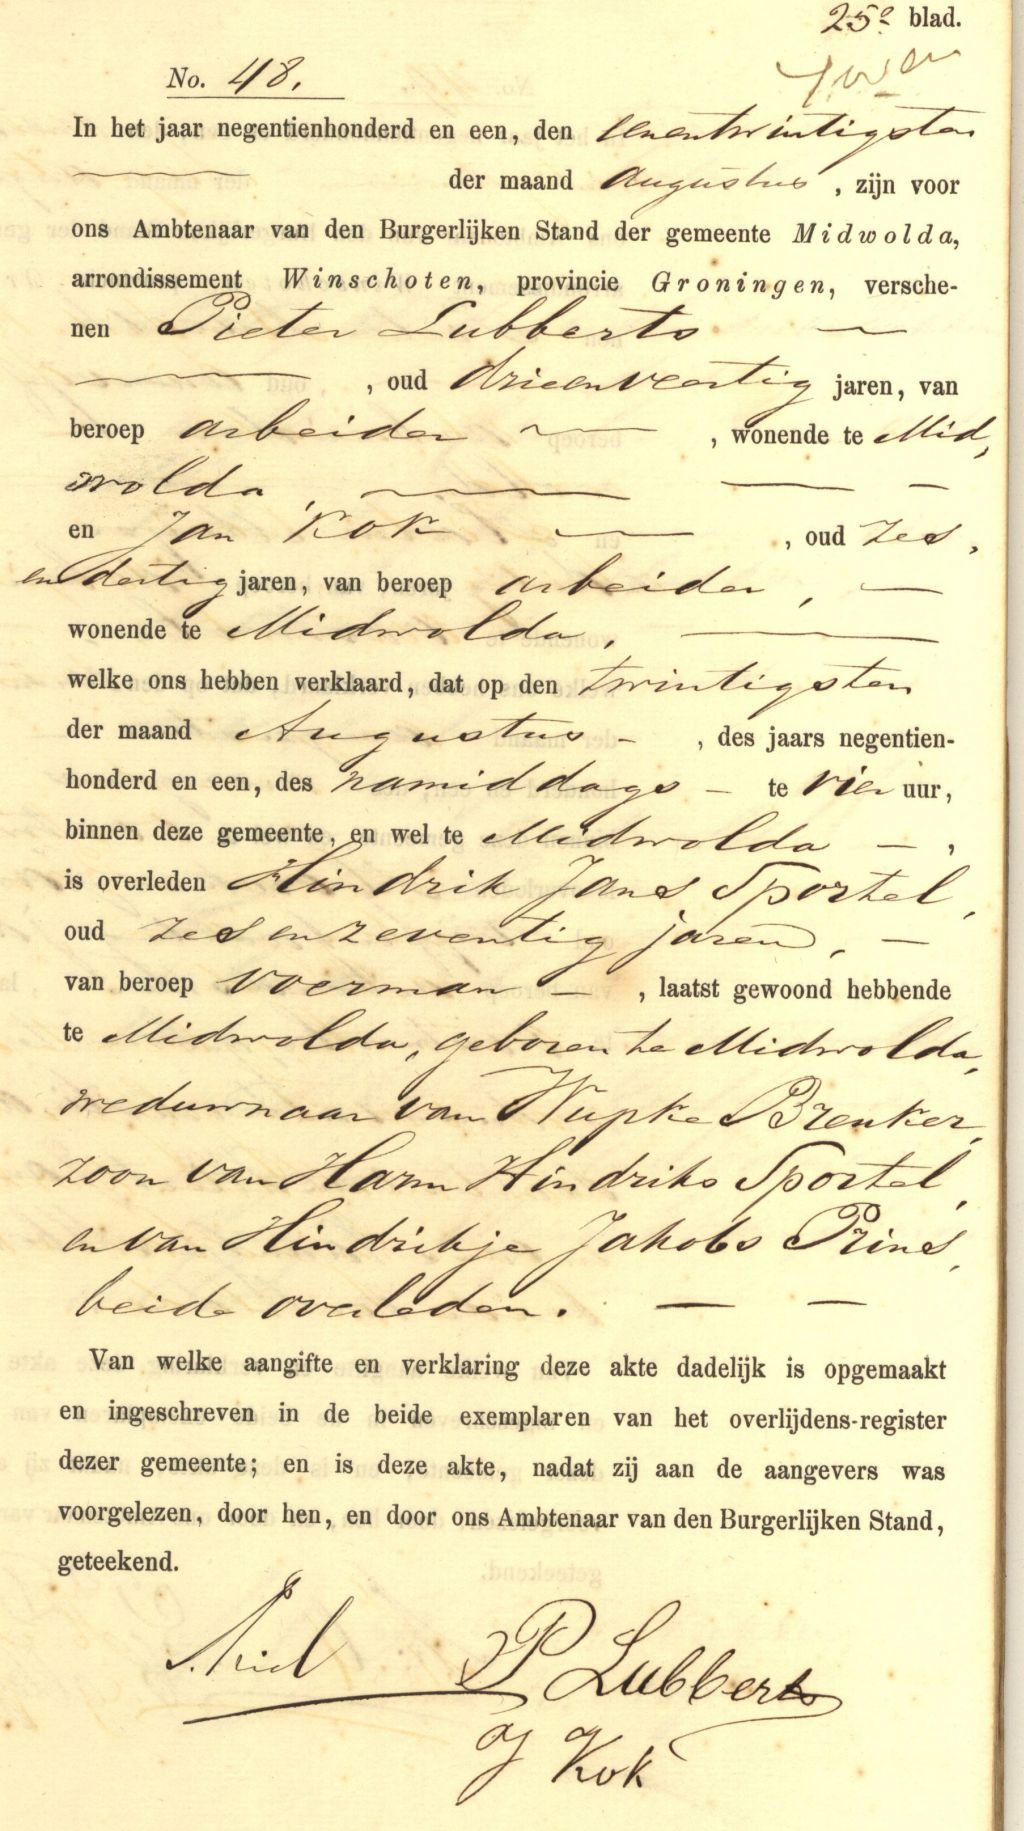 25e blad.
No. 48.
In het jaar negentienhonderd en een, den eenentwintigsten
der maand Augustus, zijn voor
ons Ambtenaar van den Burgerlijken Stand der gemeente Midwolda,
arrondissement Winschoten, provincie Groningen, versche-
nen Pieter Lubberts
, oud drieenveertig jaren, van
beroep arbeider, wonende te Mid,
wolda,
en Jan Kok, oud zes,
en dertig jaren, van beroep arbeider,
wonende te Midwolda,
welke ons hebben verklaard, dat op den twintigsten
der maand Augustus, des jaars negentien-
honderd en een, des namiddags te vier uur,
binnen deze gemeente, en wel te Midwolda,
is overleden Hindrik Jans Sportel,
oud zesenzeventig jaren,
van beroep voerman, laatst gewoond hebbende
te Midwolda, geboren te Midwolda,
weduwnaar van Wupke Breuker,
zoon van Harm Hindriks Sportel,
en van Hindrikje Jakobs Prins,
beide overleden.
Van welke aangifte en verklaring deze akte dadelijk is opgemaakt
en ingeschreven in de beide exemplaren van het overlijdens-register
dezer gemeente; en is deze akte, nadat zij aan de aangevers was
voorgelezen, door hen, en door ons Ambtenaar van den Burgerlijken Stand,
geteekend.
P Lubberts
J Kok